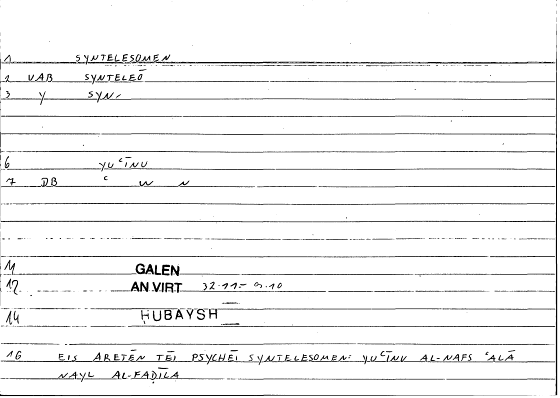 1 SYNTELESOMEN
2 VAB SYNTELEŌ
3 Y SYN-
6 YUʿĪNU
7 DB ʿ W N
11 GALEN
12 AN VIRT 32.11=
14 HUBAYSH
16 EIS ARETĒN TĒI PSYCHĒI SYNTELESOMEN: YUʿĪNU AL-NAFS ʿALĀ
NAYL AL-FAḌĪLA